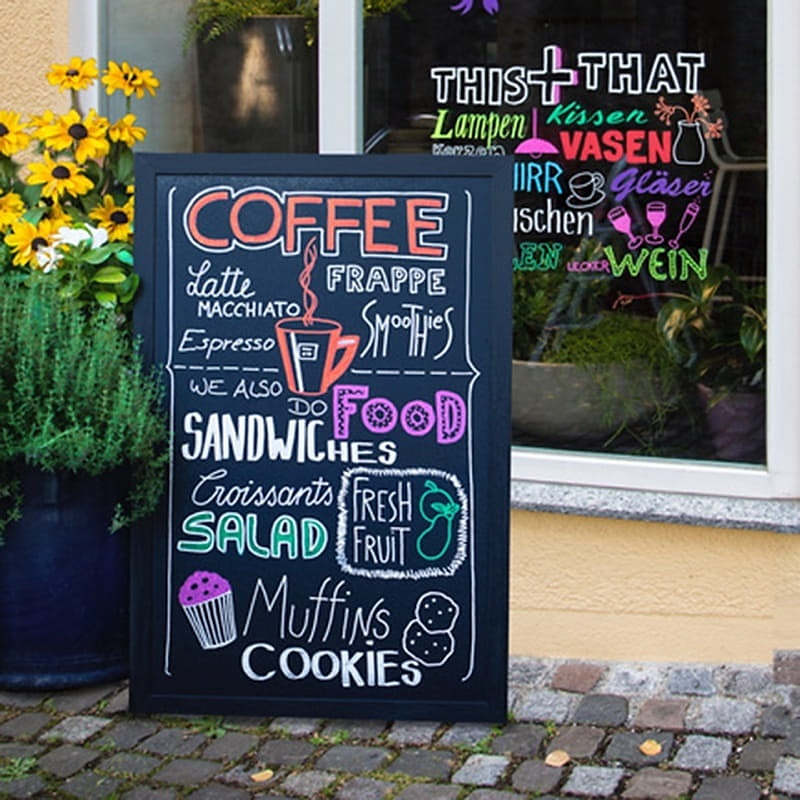 COFFEE
Latte
MACCHIATO
FRAPPE
Espresso
SMOOTHiES
WE ALSO
DO
FOOD
SANDWICHES
Croissants
SALAD
FRESH
FRUiT
Muffins
COOKIES
THIS+THAT
Lampen Kissen
VASEN
Gläser
LECKER WEIN